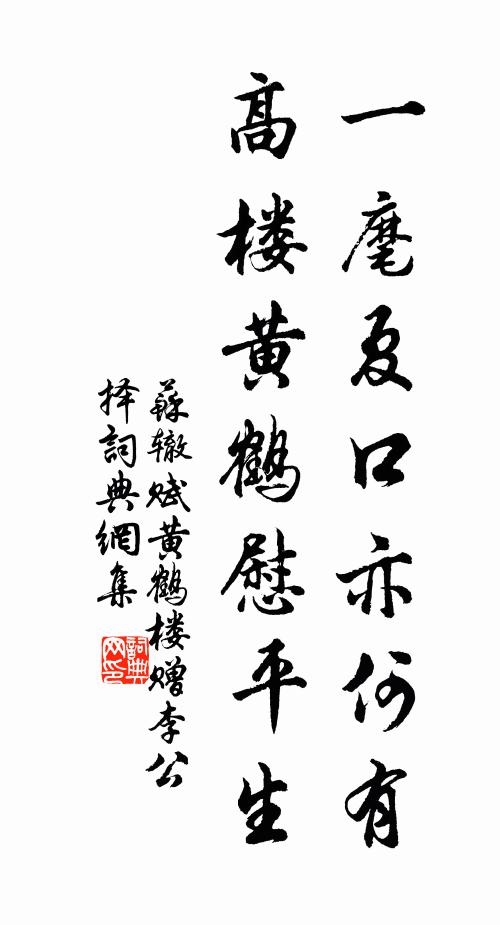 一麾夏口亦何有
高楼黄鹤慰平生
蘇辙赋黄鹤楼赠李公
择詞典網集
詞典网印